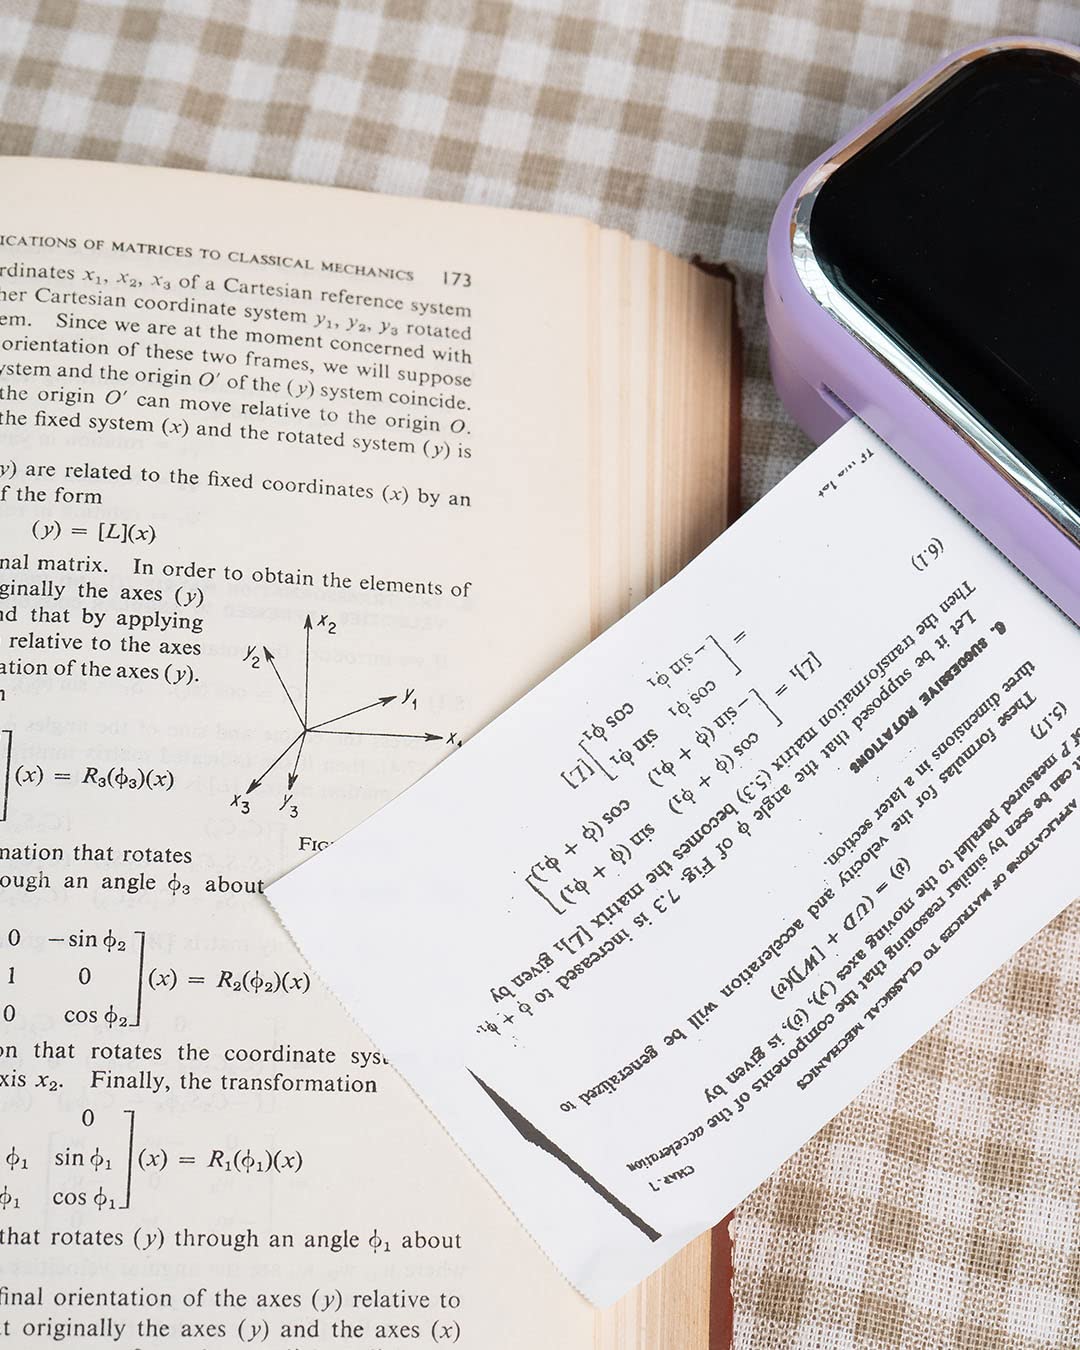 ICATIONS OF MATRICES TO CLASSICAL MECHANICS 173
rdinates x₁, x₂, x₃ of a Cartesian reference system
her Cartesian coordinate system y₁, y₂, y₃ rotated
em. Since we are at the moment concerned with
orientation of these two frames, we will suppose
ystem and the origin O′ of the (y) system coincide.
the origin O′ can move relative to the origin O.
the fixed system (x) and the rotated system (y) is
y) are related to the fixed coordinates (x) by an
f the form
(y) = [L](x)
nal matrix. In order to obtain the elements of
ginally the axes (y)
nd that by applying
relative to the axes
ation of the axes (y).
x₂
y₂
y₁
x₁
x₃
y₃
FIG
(x) = R₃(ϕ₃)(x)
mation that rotates
ough an angle ϕ₃ about
0 −sin ϕ₂
1 0 (x) = R₂(ϕ₂)(x)
0 cos ϕ₂
on that rotates the coordinate syst
xis x₂. Finally, the transformation
0
ϕ₁ sin ϕ₁ (x) = R₁(ϕ₁)(x)
ϕ₁ cos ϕ₁
that rotates (y) through an angle ϕ₁ about
final orientation of the axes (y) relative to
t originally the axes (y) and the axes (x)
CHAP. 7
APPLICATIONS OF MATRICES TO CLASSICAL MECHANICS
it can be seen by similar reasoning that the components of the acceleration
of P measured parallel to the moving axes (y), (v̇), is given by
(5.17) (v̇) = (UD + [W])(v)
These formulas for the velocity and acceleration will be generalized to
three dimensions in a later section.
6. SUCCESSIVE ROTATIONS
Let it be supposed that the angle ϕ of Fig. 7.3 is increased to ϕ + ϕ₁.
Then the transformation matrix (5.3) becomes the matrix [L]₁ given by
(6.1)
[L]₁ = [ cos (ϕ + ϕ₁) sin (ϕ + ϕ₁)
−sin (ϕ + ϕ₁) cos (ϕ + ϕ₁) ]
= [ cos ϕ₁ sin ϕ₁
−sin ϕ₁ cos ϕ₁ ] [L]